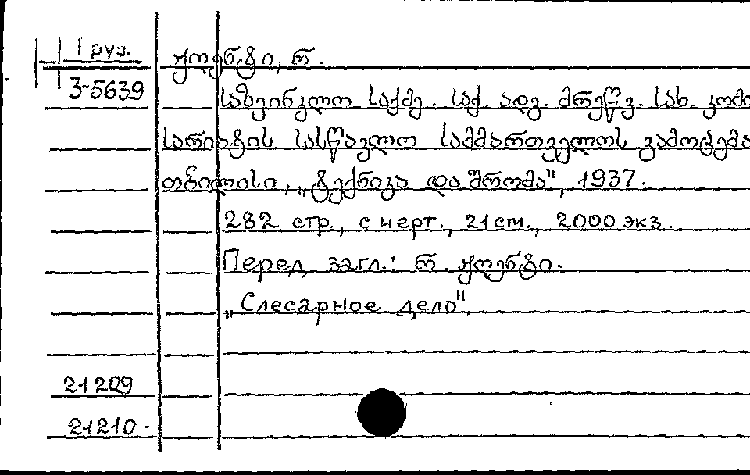 1 груз.
3-5639
ჟღენტი, რ.
საზეინკლო საქმე. საქ. ადგ. მრეწვ. სახ. კომი
სარიატის სასწავლო სამმართველოს გამოცემა
თბილისი, „ტექნიკა და შრომა", 1937.
282 стр., с черт., 21 см., 2000 экз.
Перед загл.: რ. ჟღენტი.
„Слесарное дело".
21209
21210.